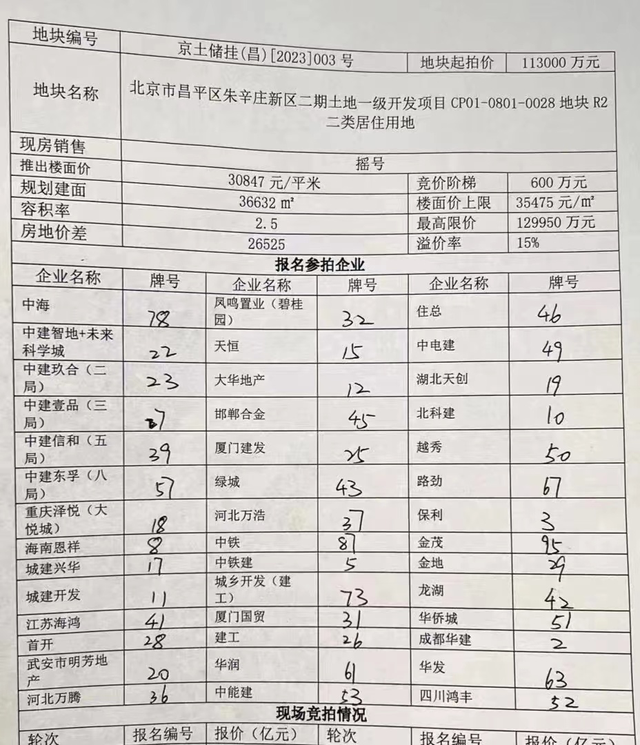 地块编号 京土储挂(昌)[2023]003号 地块起拍价 113000 万元
地块名称 北京市昌平区朱辛庄新区二期土地一级开发项目 CP01-0801-0028 地块 R2
二类居住用地
现房销售 摇号
推出楼面价 30847 元/平米 竞价阶梯 600 万元
规划建面 36632 ㎡ 楼面价上限 35475 元/㎡
容积率 2.5 最高限价 129950 万元
房地价差 26525 溢价率 15%
报名参拍企业
企业名称 牌号 企业名称 牌号 企业名称 牌号
中海 78 凤鸣置业（碧桂
园） 32 住总 46
中建智地+未来
科学城 22 天恒 15 中电建 49
中建玖合（二
局） 23 大华地产 12 湖北天创 19
中建壹品（三
局） 27 邯郸合金 45 北科建 10
中建信和（五
局） 39 厦门建发 25 越秀 50
中建东孚（八
局） 57 绿城 43 路劲 67
重庆泽悦（大
悦城） 18 河北万浩 37 保利 3
海南恩祥 8 中铁 87 金茂 95
城建兴华 17 中铁建 5 金地 29
城建开发 11 城乡开发（建
工） 73 龙湖 42
江苏海鸿 41 厦门国贸 31 华侨城 51
首开 28 建工 26 成都华建 2
武安市明芳地
产 20 华润 61 华发 63
河北万腾 36 中能建 53 四川鸿丰 52
现场竞拍情况
轮次 报名编号 报价（亿元） 轮次 报名编号 报价（亿元）